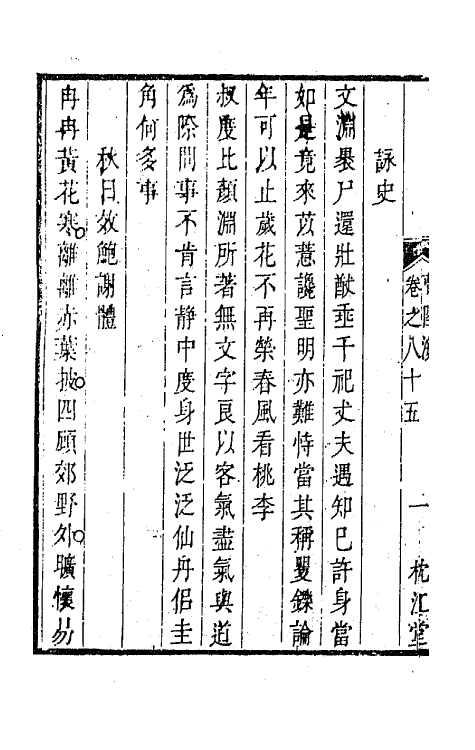 卷之八十五
一
枕江堂
詠史
文淵裹尸還壯猷垂千祀丈夫遇知已許身當
如是竟來苡薏讒聖明亦難恃當其稱矍鑠論
年可以止歲花不再榮春風看桃李
叔度比顏淵所著無文字良以客氣盡氣與道
爲際問事不肯言静中度身世泛泛仙舟侶圭
角何多事
秋日效鮑謝體
冉冉黃花寒離離赤葉披四顧郊野外曠懷易